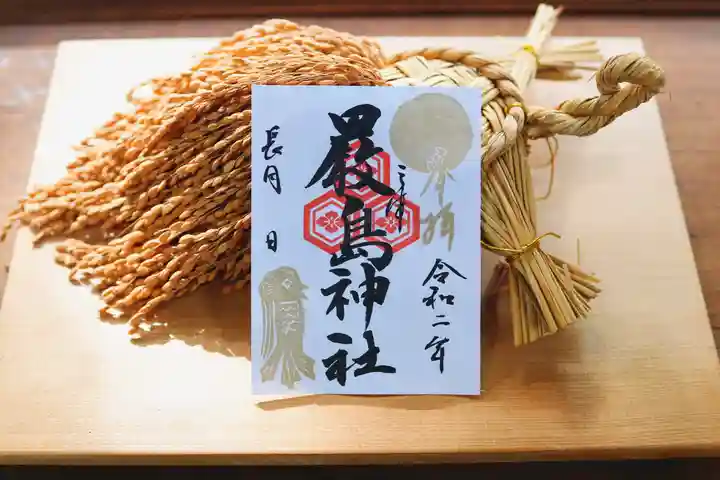 奉拝
令和二年
三津
嚴島神社
長月 日